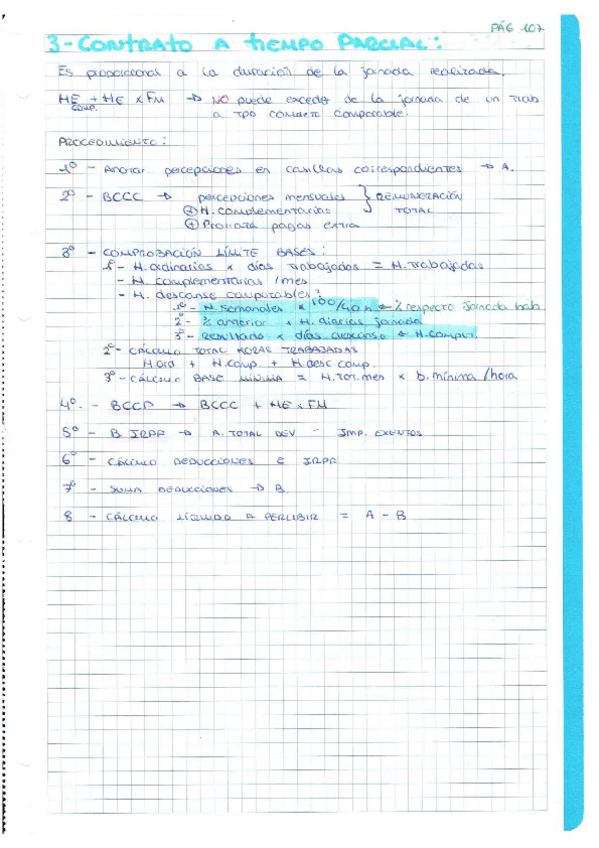 PÁG 107
3-CONTRATO A TIEMPO PARCIAL:
Es proporcional a la duración de la jornada realizada.
HE comp. + HE x FM → NO puede exceder de la jornada de un trab
a tpo completo comparable.
PROCEDIMIENTO:
1º - Anotar percepciones en casillas correspondientes → A.
2º - BCCC → percepciones mensuales } REMUNERACIÓN
+ H. complementarias TOTAL
+ Prorrata pagas extra
3º - COMPROBACIÓN LÍMITE BASES:
1º- H. ordinarias x días trabajados = H. trabajadas
- H. complementarias /mes
- H. descanso computables:
1º- H. semanales x 100/40h ← % respecto jornada hab
2º- % anterior x H. diarias jornada
3º- Resultado x días descanso = H. comput.
2º- CÁLCULO TOTAL HORAS TRABAJADAS
H.ord + H.comp. + H.desc comp.
3º- CÁLCULO BASE MÍNIMA = H.tot.mes x b.mínima/hora
4º. - BCCP → BCCC + HE x FM
5º - B IRPF → A. TOTAL DEV - IMP. EXENTOS
6º - CÁLCULO DEDUCCIONES E IRPF
7º - SUMA DEDUCCIONES → B.
8 - CÁLCULO LÍQUIDO A PERCIBIR = A - B